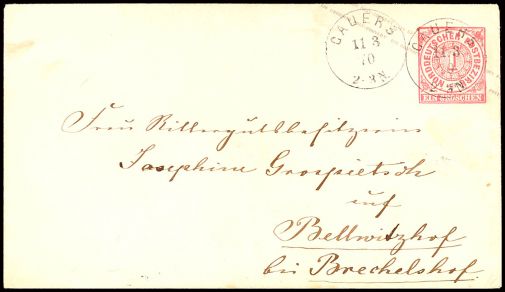 GAUERS
11 3
70
2-3N.
GAUERS
11 3
2-3N.
NORDDEUTSCHER POSTBEZIRK
1
EIN GROSCHEN
Frau Rittergutsbesitzerin
Josephine Grospietsch
auf
Bellwitzhof
bei Brechelshof